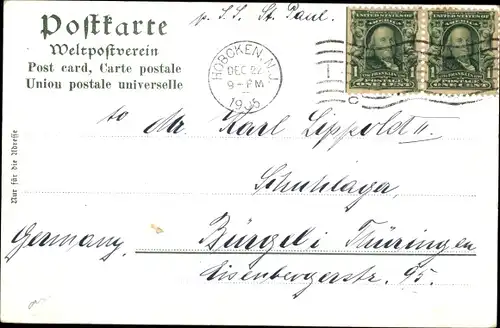 Postkarte
Weltpostverein
Post card, Carte postale
Union postale universelle
p. S.S. St. Paul.
HOBOKEN, N.J.
DEC 22
9-PM
1905
C
UNITED STATES OF AMERICA
FRANKLIN
1 1
ONE CENT
UNITED STATES OF AMERICA
FRANKLIN
1 1
ONE CENT
Nur für die Adresse
to Mr. Karl Lippoldt II.
Schuhlager,
Germany, Bürgel i Thüringen
Eisenbergerstr. 95.